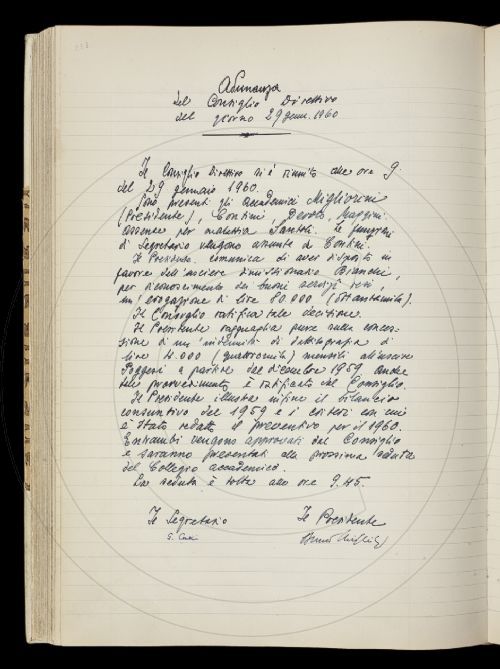 Adunanza
del Consiglio Direttivo
del giorno 29 genn. 1960
Il Consiglio Direttivo si è riunito alle ore 9
del 29 gennaio 1960.
Sono presenti gli accademici Migliorini
(Presidente), Contini, Devoto, Maggini.
Assente per malattia Santoli. Le funzioni
di Segretario vengono assunte da Contini.
Il Presidente comunica di aver disposto in
favore dell'usciere dimissionario Bianchi,
per riconoscimento dei buoni servizi resi,
un'erogazione di lire 80.000 (ottantamila).
Il Consiglio ratifica tale decisione.
Il Presidente ragguaglia pure sulla conces-
sione di un'indennità di dattilografia di
lire 4.000 (quattromila) mensili all'usciere
Poggesi a partire dal dicembre 1959. Anche
tale provvedimento è ratificato dal Consiglio.
Il Presidente illustra infine il bilancio
consuntivo del 1959 e i criteri con cui
è stato redatto il preventivo per il 1960.
Entrambi vengono approvati dal Consiglio
e saranno presentati alla prossima seduta
del Collegio accademico.
La seduta è tolta alle ore 9.45.
Il Segretario Il Presidente